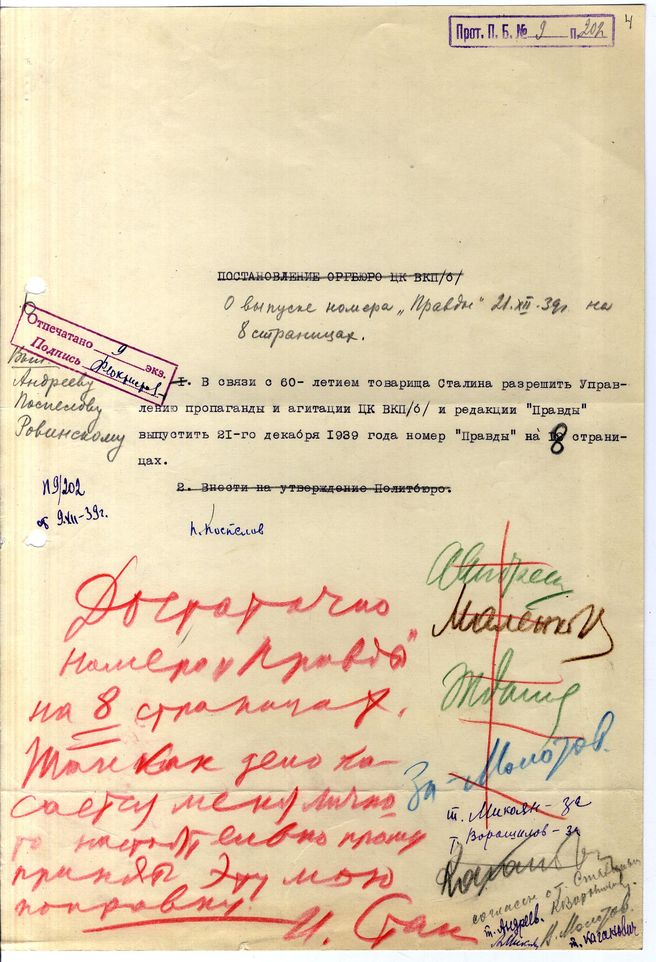 4
Прот. П. Б. № 9 п. 202
ПОСТАНОВЛЕНИЕ ОРГБЮРО ЦК ВКП/б/
О выпуске номера „Правды" 21.XII.39г на
8 страницах.
Отпечатано 9 экз.
Подпись
Вып.
Андрееву
Поспелову
Ровинскому
1. В связи с 60- летием товарища Сталина разрешить Управ-
лению пропаганды и агитации ЦК ВКП/б/ и редакции "Правды"
выпустить 21-го декабря 1939 года номер "Правды" на 8 страни-
цах.
2. Внести на утверждение Политбюро.
П9/202
от 9.XII-39г.
П. Поспелов
Достаточно
номера „Правды"
на 8 страницах.
Так как дело ка-
сается меня лично-
го настоятельно прошу
принять эту мою
поправку.
И. Стал
Андреев
Маленков
Жданов
За – Молотов.
т. Микоян – за
т. Ворошилов – за
Каганович
согласен
т. Андреев.
В. Молотов.
т. Каганович